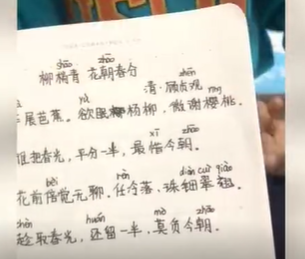 shāo zhāo
柳梢青 花朝春分
zhēn
清·顾贞观
yà rǎng
展芭蕉。欲眠杨柳，微谢樱桃。
xī zhāo
把春光，平分一半，最惜今朝。
bèi rèn diàn cuì qiào
花前倍觉无聊。任冷落、珠钿翠翘。
chèn huán mò zhāo
趁取春光，还留一半，莫负今朝。